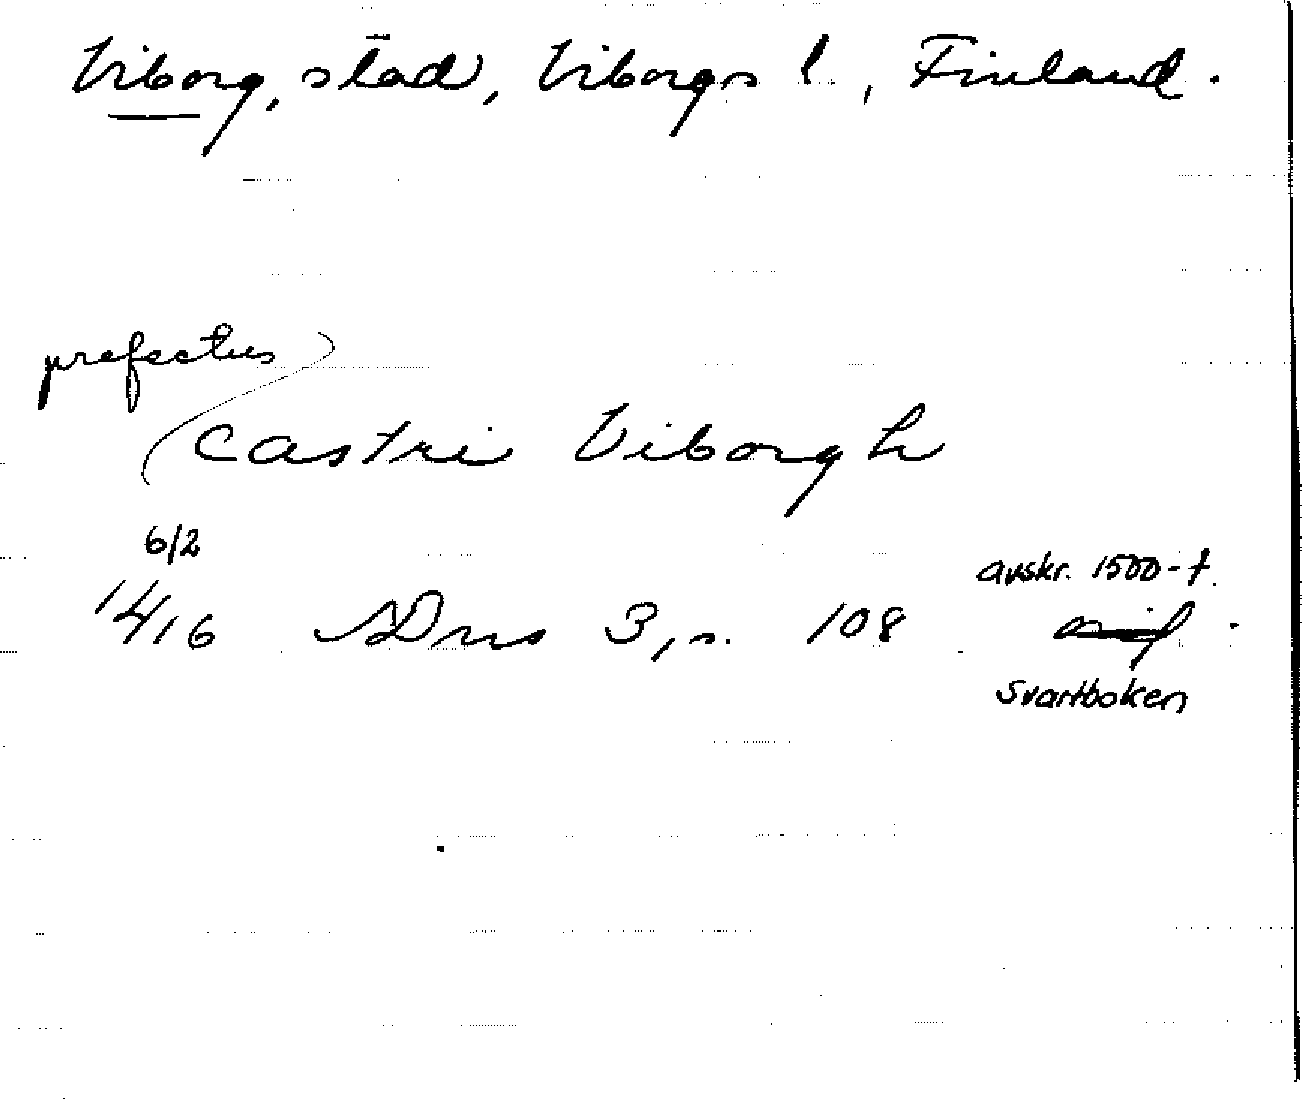 Viborg, stad, Viborgs l., Finland.
prefectus
castri Viborgh
6/2
1416 SDns 3, s. 108
avskr. 1500-t.
Svartboken